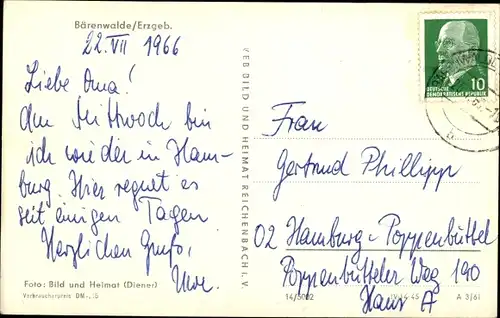 Bärenwalde/Erzgeb.
22. VII 1966
Liebe Oma!
Am Mittwoch bin
ich wieder in Ham-
burg. Hier regnet es
seit einigen Tagen
Herzlichen Gruß,
Uwe.
Foto: Bild und Heimat (Diener)
Verbraucherpreis DM -,15
VEB BILD UND HEIMAT REICHENBACH I. V.
10
DEUTSCHE
DEMOKRATISCHE REPUBLIK
Frau
Gertrud Phillipp
02 Hamburg-Poppenbüttel
Poppenbütteler Weg 190
Haus A
A 3/61